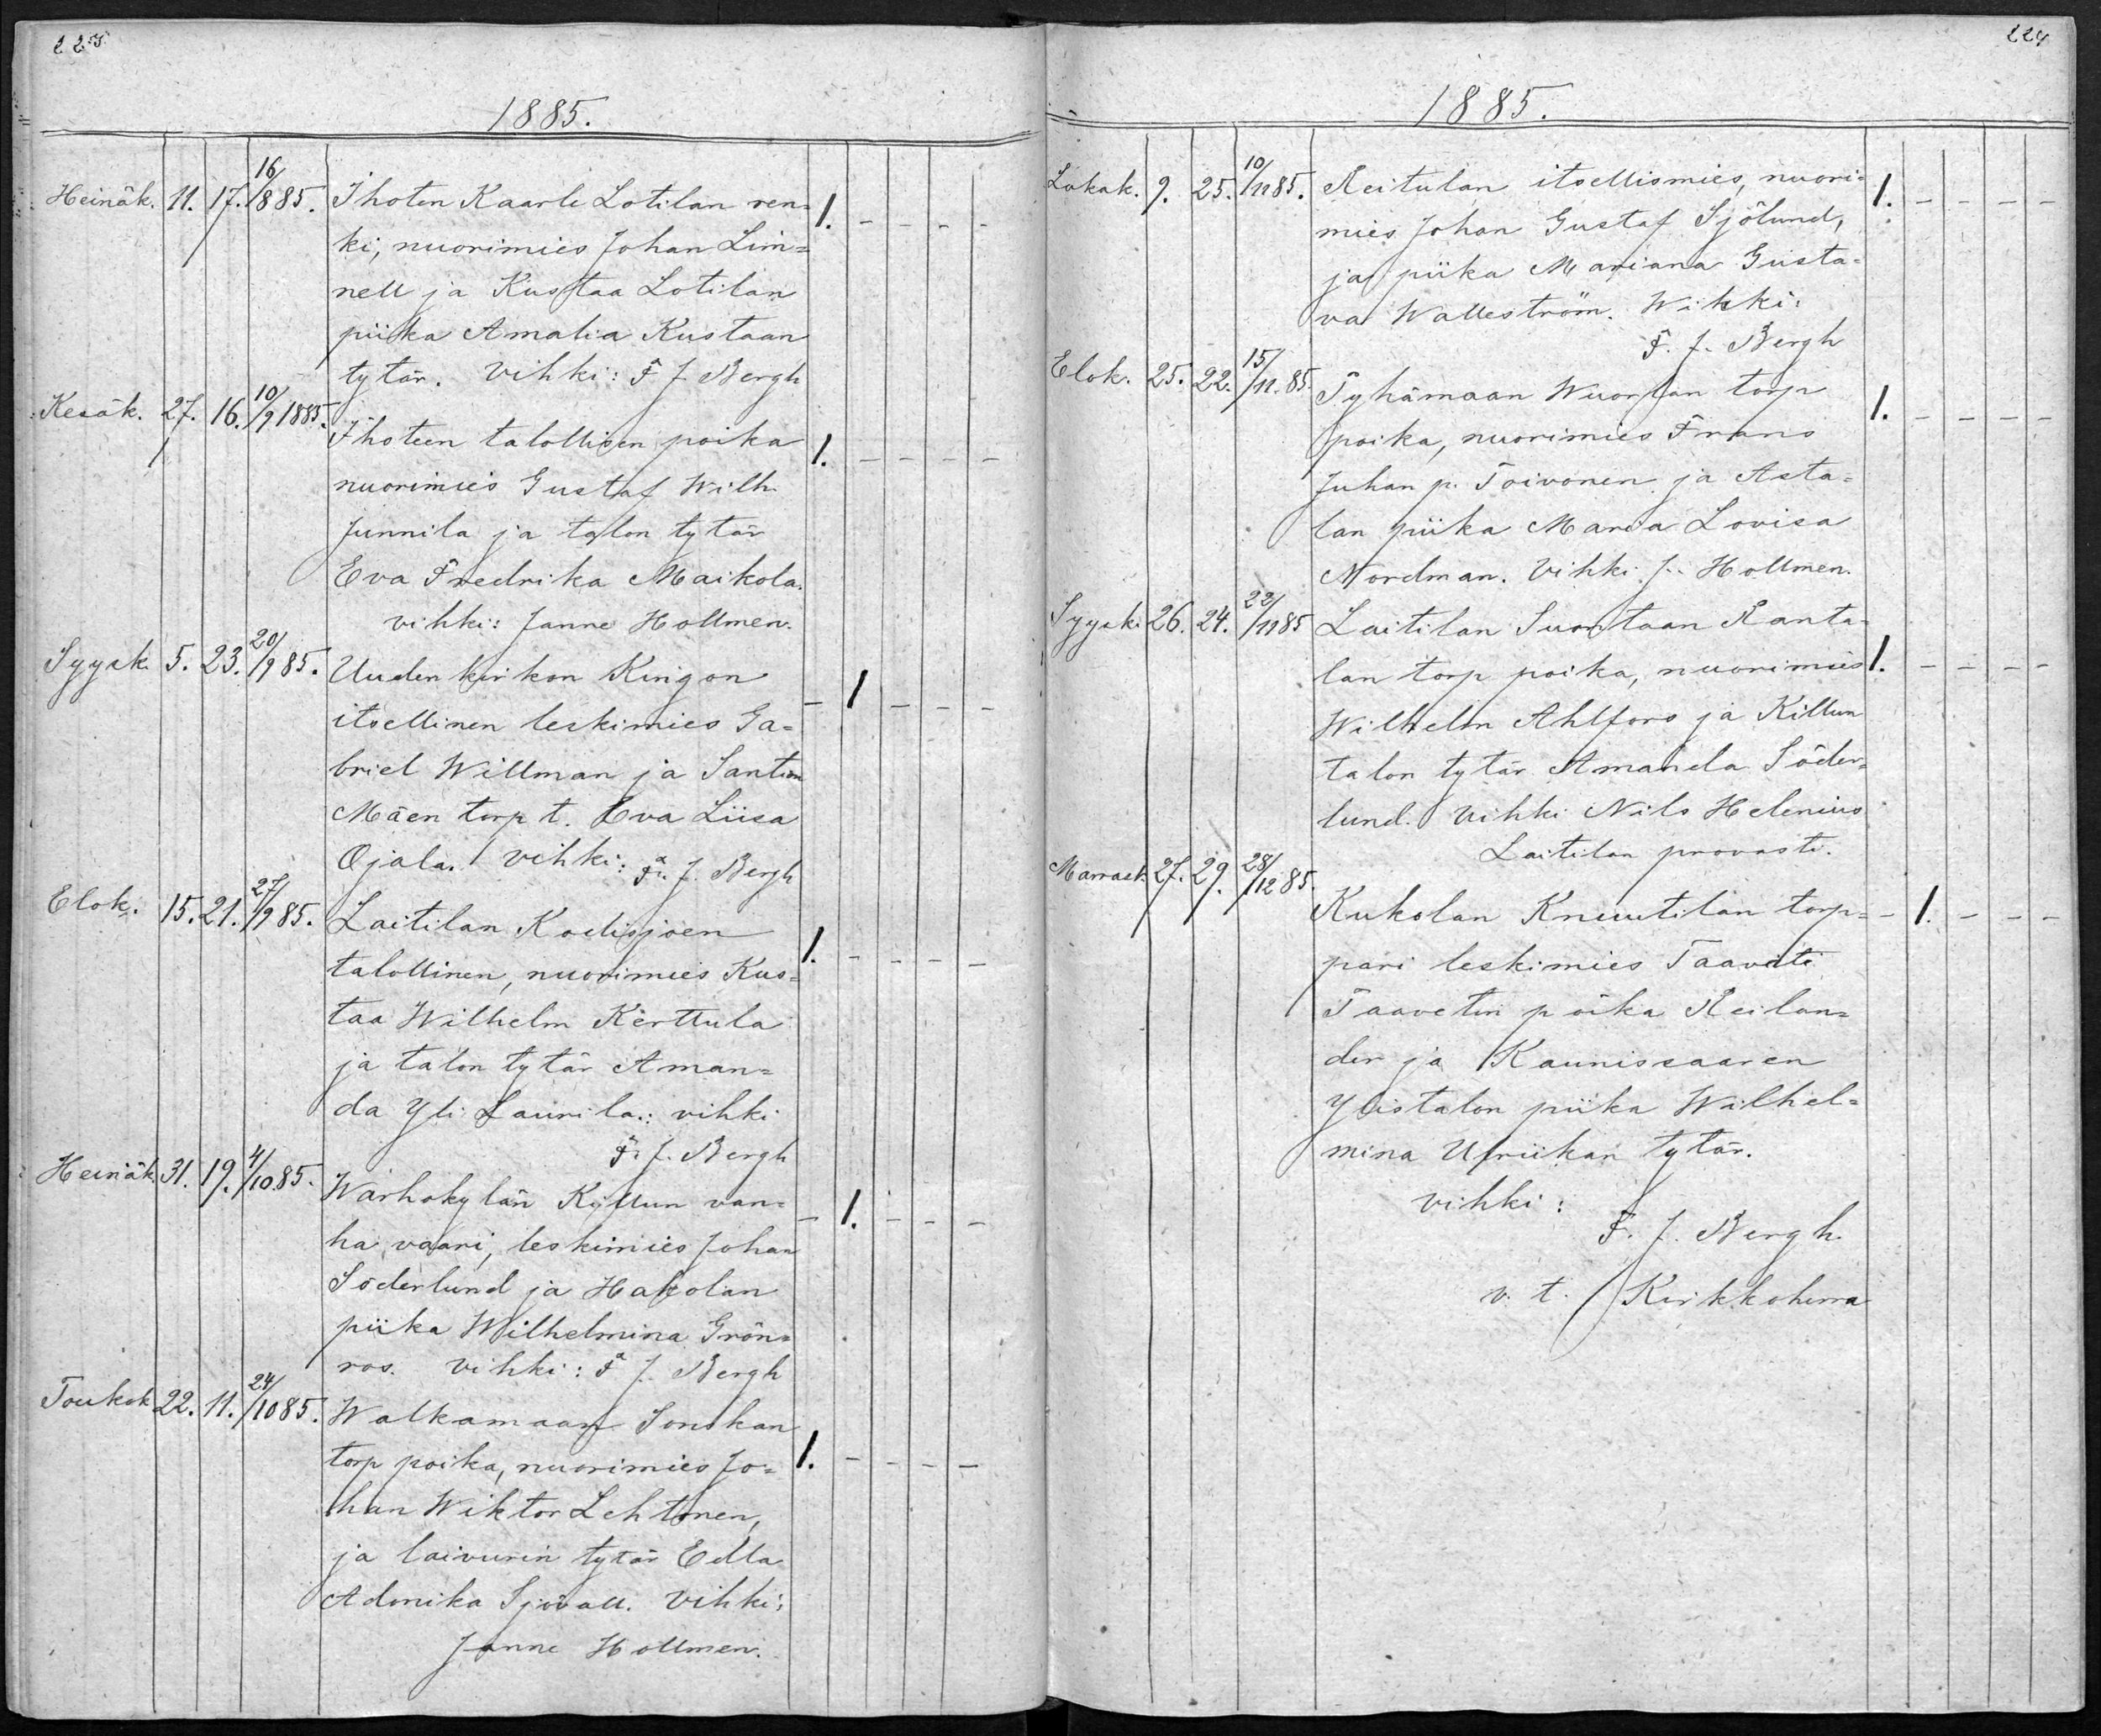 223
1885.
Heinäk. 11. 17. 16/8 85. Ihoten Kaarle Lotilan ren= 1. - - - -
ki, nuorimies Johan Lin=
nell ja Kustaa Lotilan
piika Amalia Kustaan
tytär. vihki: F J Bergh
Kesäk. 27. 16. 10/9 1885. Ihoteen talollisen poika 1. - - - -
nuorimies Gustaf Wilh.
Junnila ja talon tytär
Eva Fredrika Maikola.
vihki: Janne Hollmen.
Syysk. 5. 23. 20/9 85. Uudenkirkon Ringon - 1 - - -
itsellinen leskimies Ga=
briel Willman ja Santion
Mäen torp t. Eva Liisa
Ojala. vihki: F. J. Bergh
Elok. 15. 21. 27/9 85. Laitilan Kodisjoen 1. - - - -
talollinen, nuorimies Kus=
taa Wilhelm Kerttula
ja talon tytär Aman=
da Yli Laurila.: vihki
F. J. Bergh
Heinäk. 31. 19. 4/10 85. Warhokylän Kyllun van= - 1. - - -
ha vaari, leskimies Johan
Söderlund ja Hakolan
piika Wilhelmina Grön=
ros. vihki: F J. Bergh
Toukok. 22. 11. 24/10 85. Walkamaan
torp poika, nuorimies Jo= 1. - - - -
han Wiktor Lehtonen,
ja laivurin tytär Edla
Adonika Sjövall. Vihki:
Janne Hollmen.
224
1885.
Lokak. 9. 25. 10/11 85. Reitulan itsellismies, nuori= 1. - - - -
mies Johan Gustaf Sjölund,
ja piika Mariana Gusta=
va Walleström. Wihki:
F. J. Bergh
Elok. 25. 22. 15/11. 85. Pyhämaan Wuorlan torp 1. - - - -
poika, nuorimies Frans
Juhan p. Toivonen ja Asta=
lan piika Maria Lovisa
Nordman. Vihki J. Hollmen.
Syysk. 26. 24. 22/11 85 Laitilan Suontaan Ranta=
lan torp poika, nuorimies 1. - - - -
Wilhelm Ahlfors ja Killun
talon tytär Amanda Söder=
lund. Vihki Nils Helenius
Laitilan provasti.
Marrask. 27. 29. 28/12 85. Kukolan Knuutilan torp= - 1. - - -
pari leskimies Taavetti
Taavetin poika Reilan=
der ja Kaunissaaren
Ylistalon piika Wilhel=
mina Ulriikan tytär.
vihki:
F. J. Bergh.
v. t. Kirkkoherra